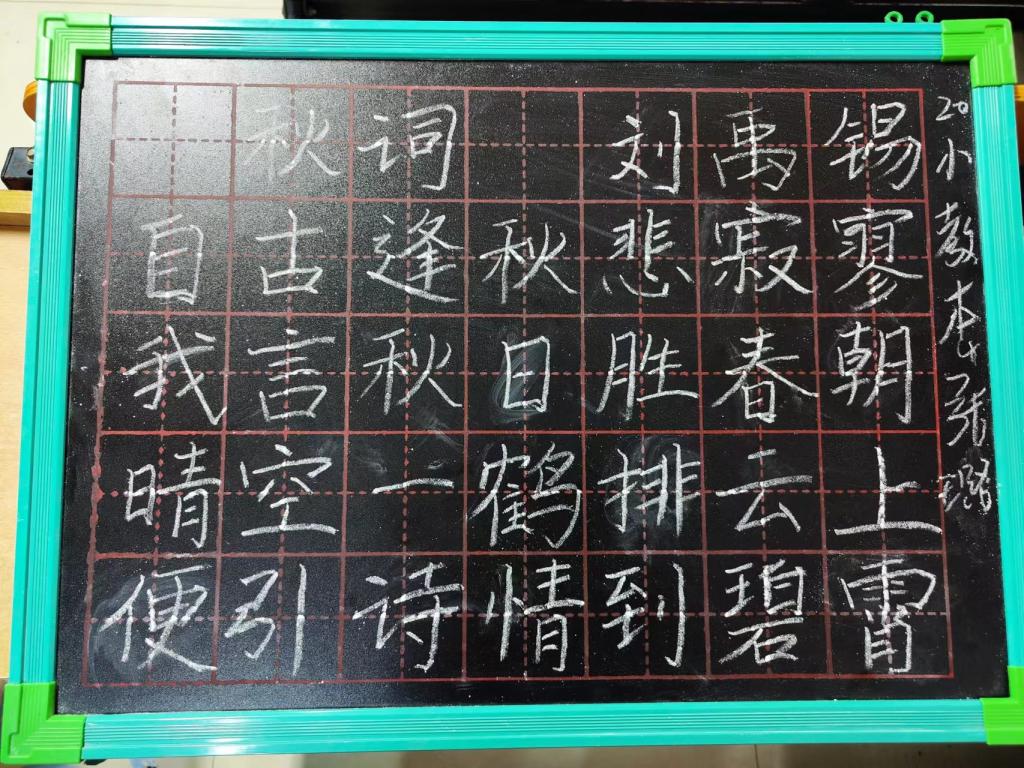 秋词 刘禹锡
自古逢秋悲寂寥
我言秋日胜春朝
晴空一鹤排云上
便引诗情到碧霄
20小教本张璐